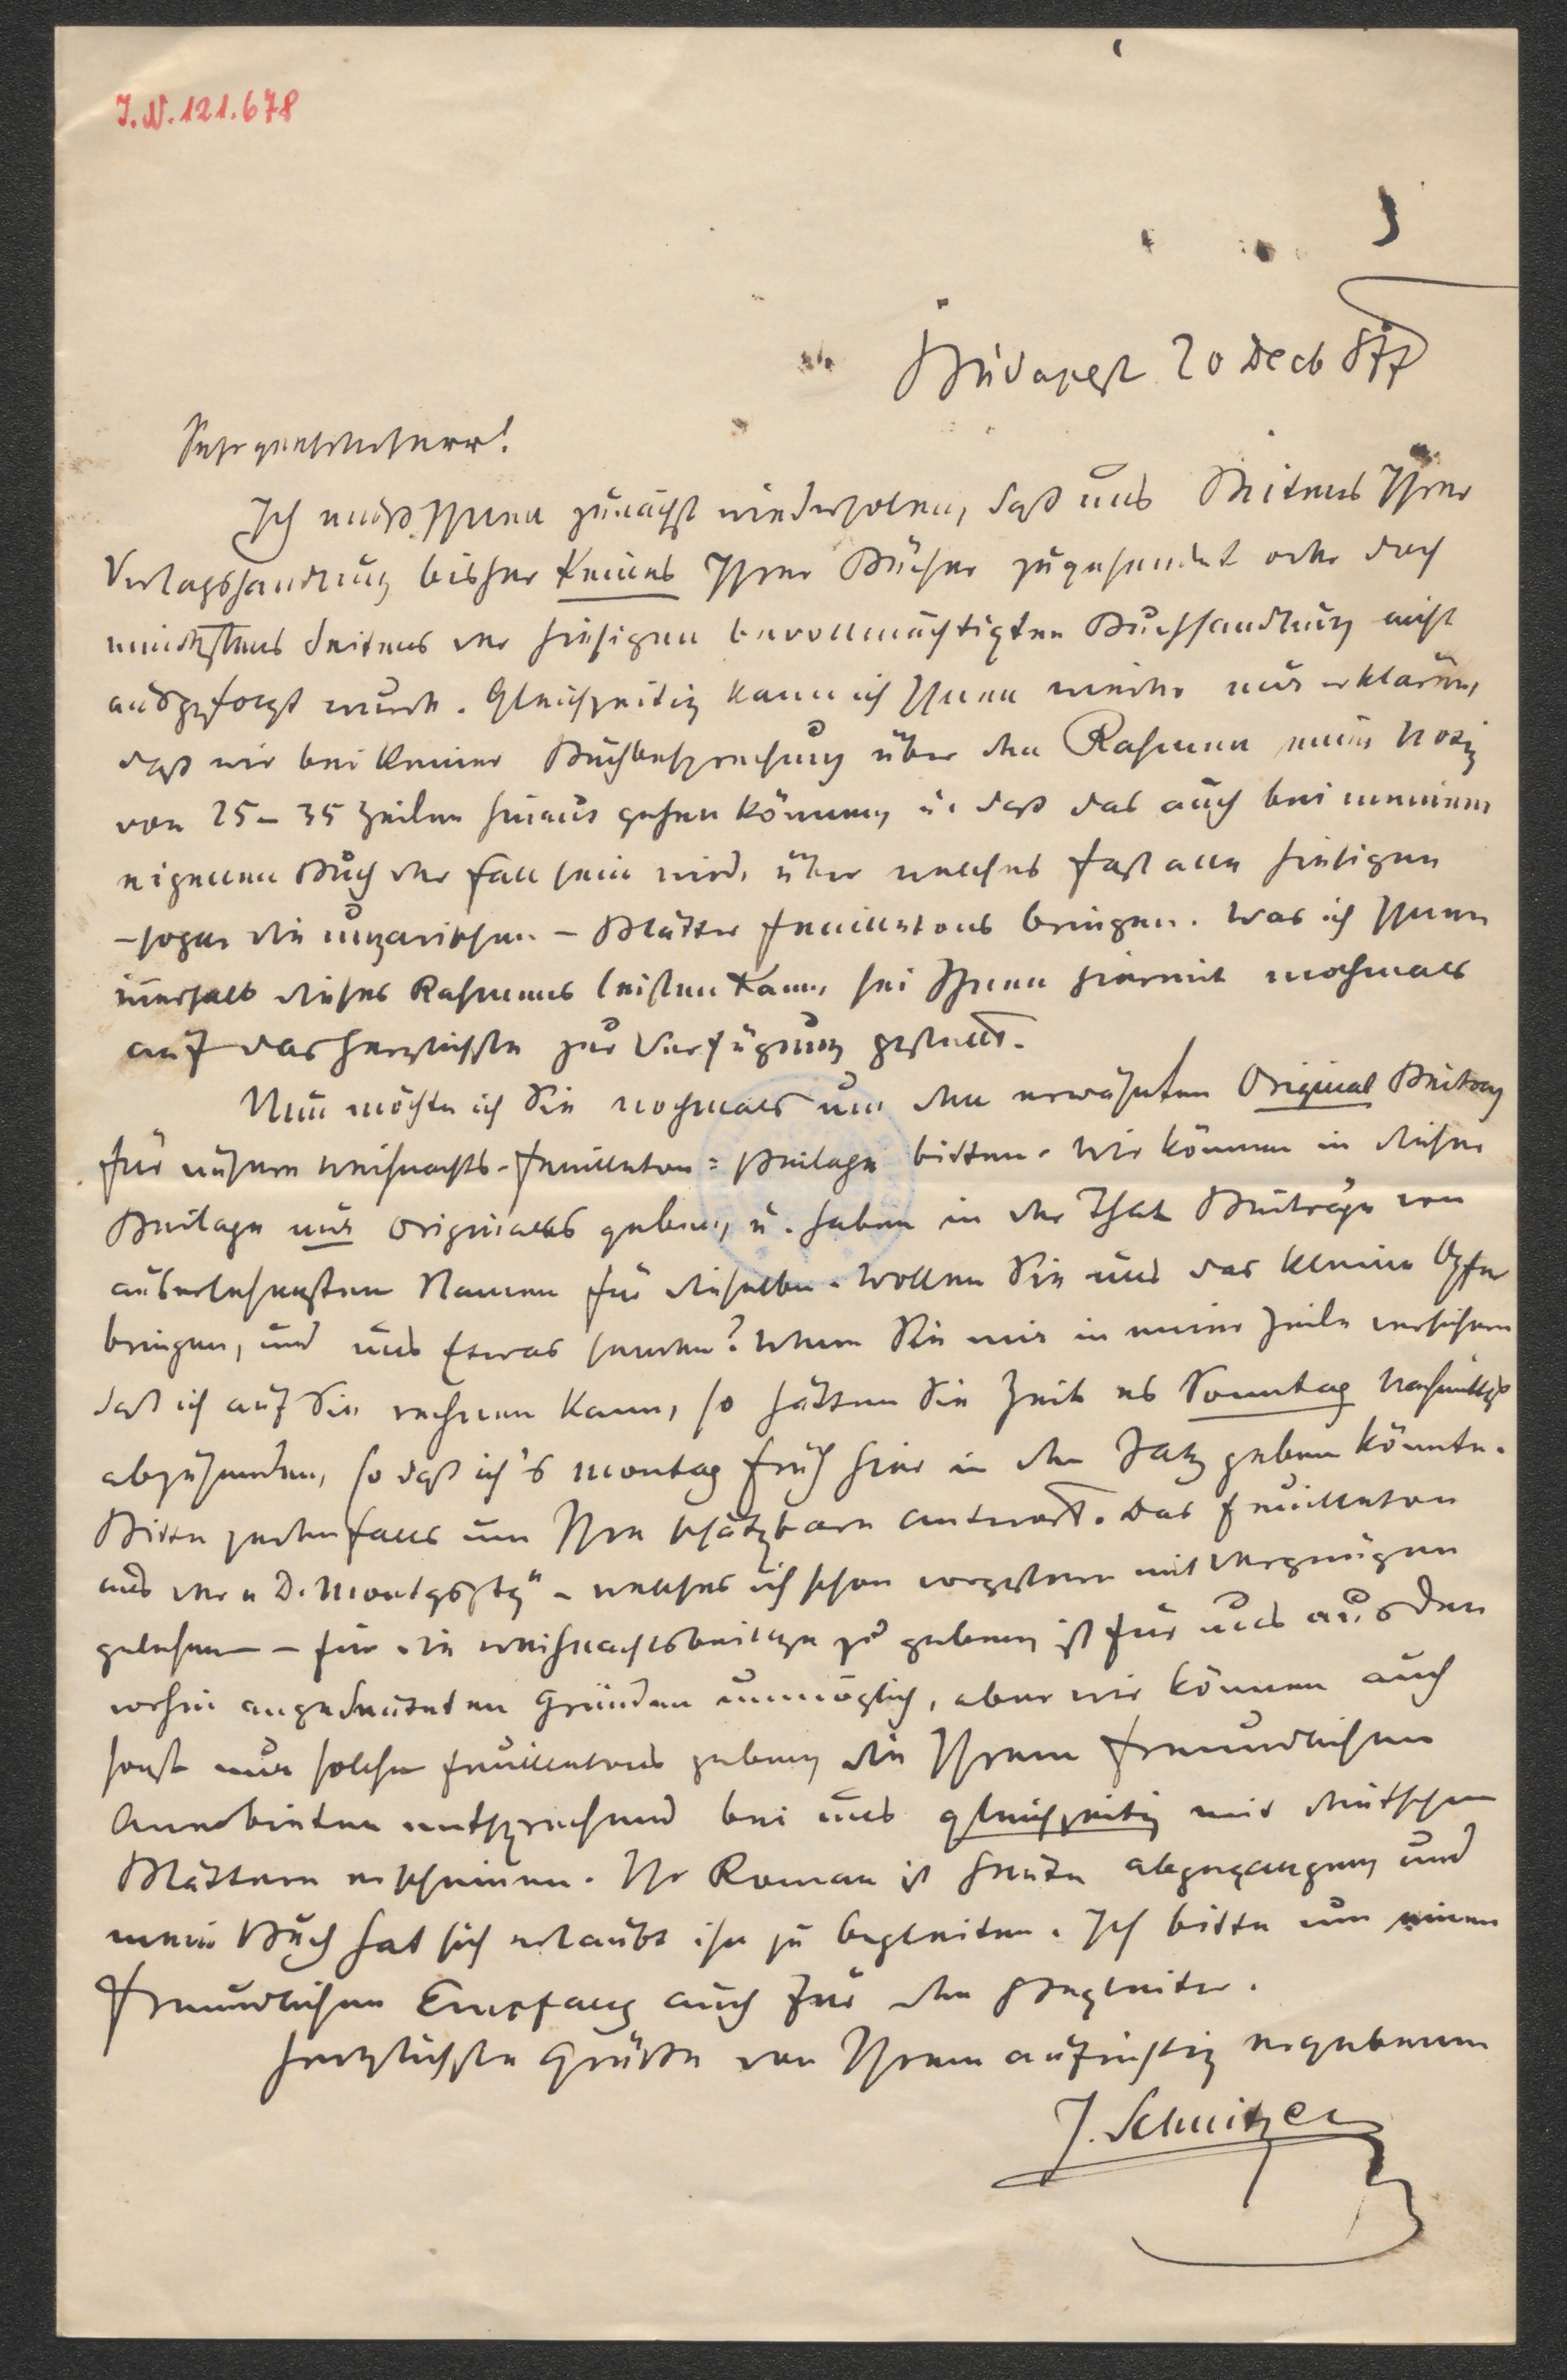 J.N. 121.678
Budapest 20 Decb 877
Sehr geehrter Herr!
Ich muß Ihnen zunächst wiederholen, daß uns Seitens Ihrer
Verlagshandlung bisher keines Ihrer Bücher zugesendet oder doch
mindestens Seitens der hiesigen bevollmächtigten Buchhandlung nicht
ausgefolgt wurde. Gleichzeitig kann ich Ihnen weiter nur erklären,
daß wir bei keiner Buchbesprechung über den Rahmen einer Notiz
von 25 – 35 Zeilen hinaus gehen können, u. daß das auch bei meinem
eigenen Buch der Fall sein wird, über welches fast alle hiesigen
– sogar die ungarischen – Blätter Feuilletons bringen. Was ich Ihnen
innerhalb dieses Rahmens leisten kann, sei Ihnen hiermit nochmals
auf das herzlichste zur Verfügung gestellt.
Nun möchte ich Sie nochmals um den erwähnten Original Beitrag
für unsere Weihnachts-Feuilleton-Beilage bitten. Wir können in dieser
Beilage nur Originales geben, u. haben in der That Beiträge von
auserlesensten Namen für dieselbe. Wollen Sie uns das kleine Opfer
bringen, und uns Etwas senden? Wenn Sie mir in einer Zeile versichern
daß ich auf Sie rechnen kann, so hätten Sie Zeit es Sonntag Nachmittgs
abzusenden, so daß ich's Montag früh hier in den Satz geben könnte.
Bitte jedenfalls um Ihre schätzbare Antwort. Das Feuilleton
aus der „D. Montgsztg" – welches ich schon vorgestern mit Vergnügen
gelesen – für die Weihnachtsbeilage zu geben, ist für uns aus den
vorhin angedeuteten Gründen unmöglich, aber wir können auch
sonst nur solche Feuilletons geben, die Ihrem freundlichen
Anerbieten entsprechend bei uns gleichzeitig mit deutschen
Blättern erscheinen. Ihr Roman ist heute abgegangen, und
mein Buch hat sich erlaubt ihn zu begleiten. Ich bitte um einen
freundlichen Empfang auch für den Begleiter.
Herzlichste Grüße von Ihrem aufrichtig ergebenen
J. Schnitzer